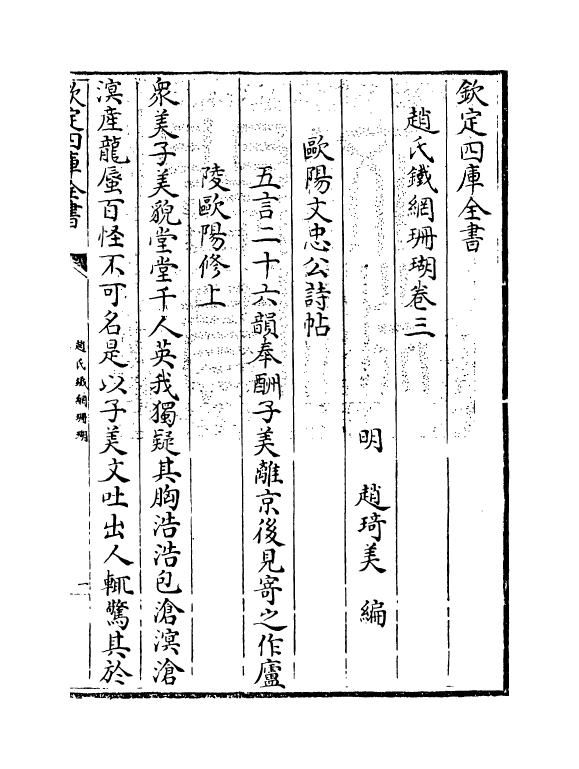 欽定四庫全書
趙氏鐵網珊瑚卷三
明 趙琦美 編
歐陽文忠公詩帖
五言二十六韻奉酬子美離京後見寄之作廬
陵歐陽修上
衆美子美貌堂堂千人英我獨疑其胸浩浩包滄溟滄
溟産龍蜃百怪不可名是以子美文吐出人輒驚其於
欽定四庫全書
趙氏鐵網珊瑚
一